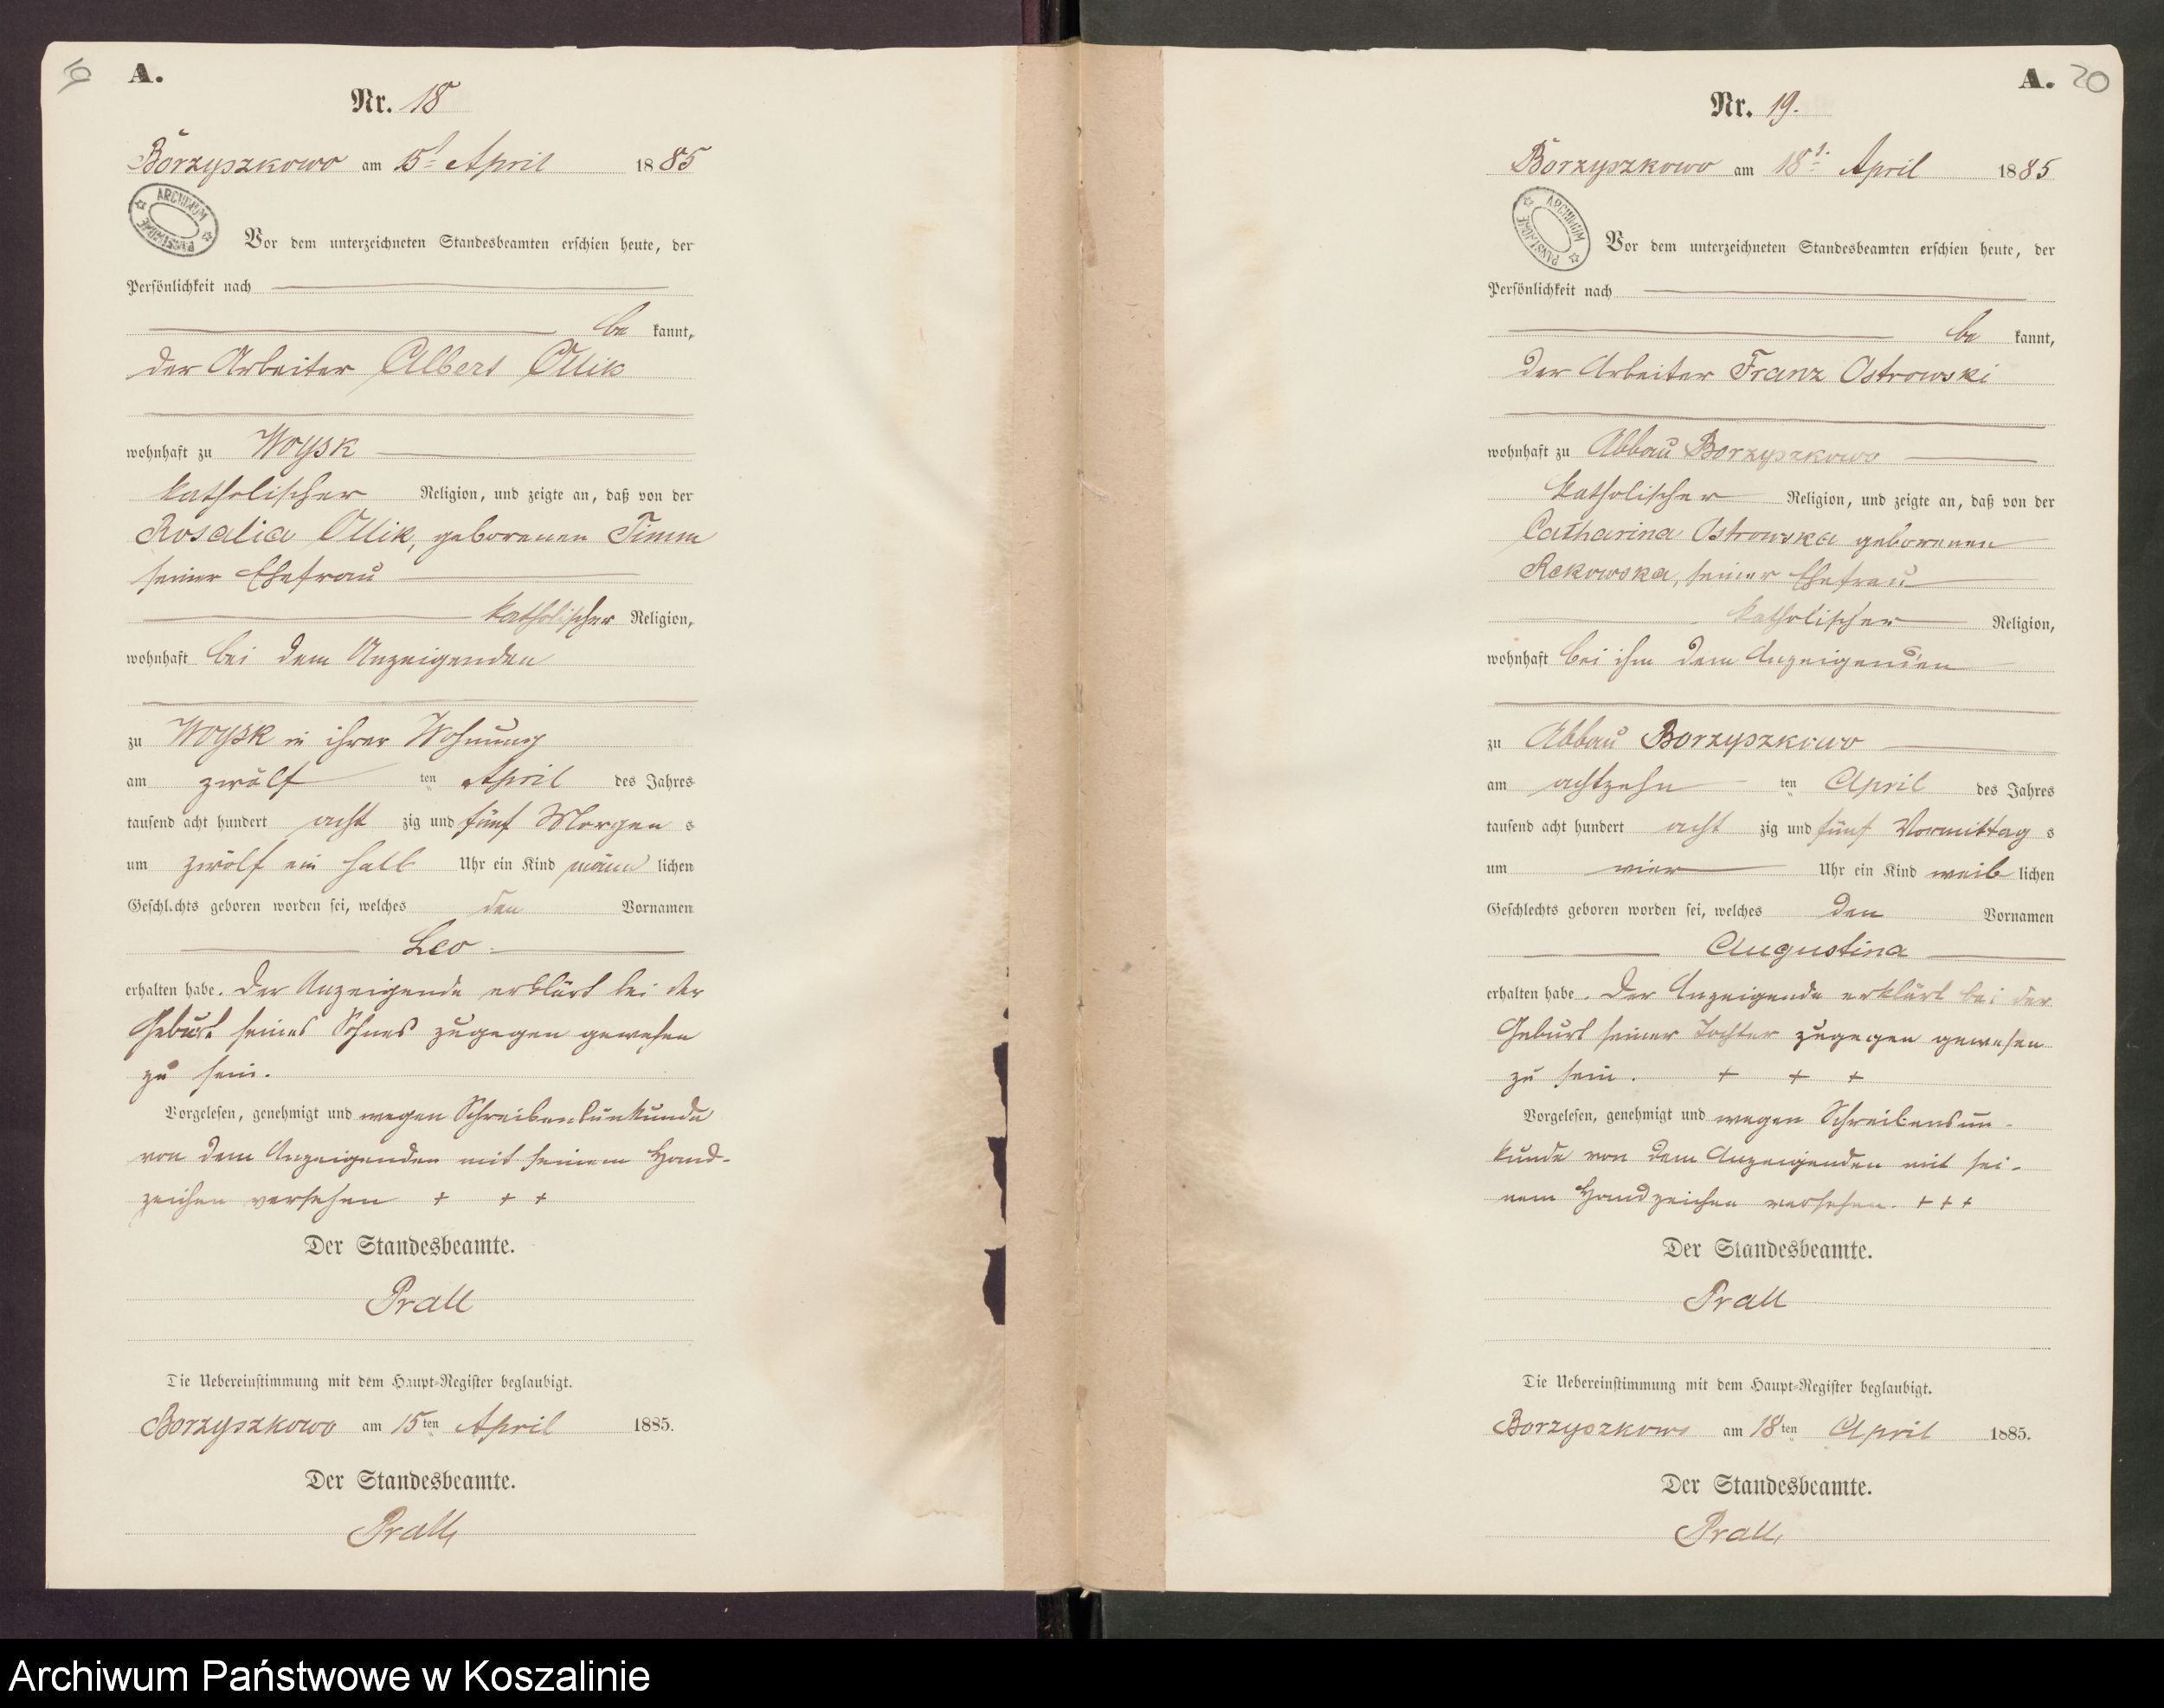 A.
Nr. 18
Borzyszkowo am 15t April 1885
ARCHIWUM PAŃSTWOWE
Vor dem unterzeichneten Standesbeamten erschien heute, der
Persönlichkeit nach
be kannt,
der Arbeiter Albert Ollik
wohnhaft zu Woysk
katholischer Religion, und zeigte an, daß von der
Rosalia Ollik, geborenen Timm
seiner Ehefrau
katholischer Religion,
wohnhaft bei dem Anzeigenden
zu Woysk in ihrer Wohnung
am zwölf ten April des Jahres
tausend acht hundert acht zig und fünf Morgen s
um zwölf ein halb Uhr ein Kind männ lichen
Geschlechts geboren worden sei, welches den Vornamen
Leo
erhalten habe. Der Anzeigende erklärt bei der
Geburt seines Sohnes zugegen gewesen
zu sein.
Vorgelesen, genehmigt und wegen Schreibensunkunde
von dem Anzeigenden mit seinem Hand-
zeichen versehen + + +
Der Standesbeamte.
Prall
Die Uebereinstimmung mit dem Haupt-Register beglaubigt.
Borzyszkowo am 15ten April 1885.
Der Standesbeamte.
Prall
A. 20
Nr. 19.
Borzyszkowo am 18t. April 1885
ARCHIWUM PAŃSTWOWE
Vor dem unterzeichneten Standesbeamten erschien heute, der
Persönlichkeit nach
be kannt,
der Arbeiter Franz Ostrowski
wohnhaft zu Abbau Borzyszkowo
katholischer Religion, und zeigte an, daß von der
Catharina Ostrowska geborenen
Rekowska, seiner Ehefrau
katholischer Religion,
wohnhaft bei ihm dem Anzeigenden
zu Abbau Borzyszkowo
am achtzehn ten April des Jahres
tausend acht hundert acht zig und fünf Vormittag s
um vier Uhr ein Kind weib lichen
Geschlechts geboren worden sei, welches den Vornamen
Augustina
erhalten habe. Der Anzeigende erklärt bei der
Geburt seiner Tochter zugegen gewesen
zu sein. + + +
Vorgelesen, genehmigt und wegen Schreibensun-
kunde von dem Anzeigenden mit sei-
nem Handzeichen versehen. + + +
Der Standesbeamte.
Prall
Die Uebereinstimmung mit dem Haupt-Register beglaubigt.
Borzyszkowo am 18ten April 1885.
Der Standesbeamte.
Prall
Archiwum Państwowe w Koszalinie